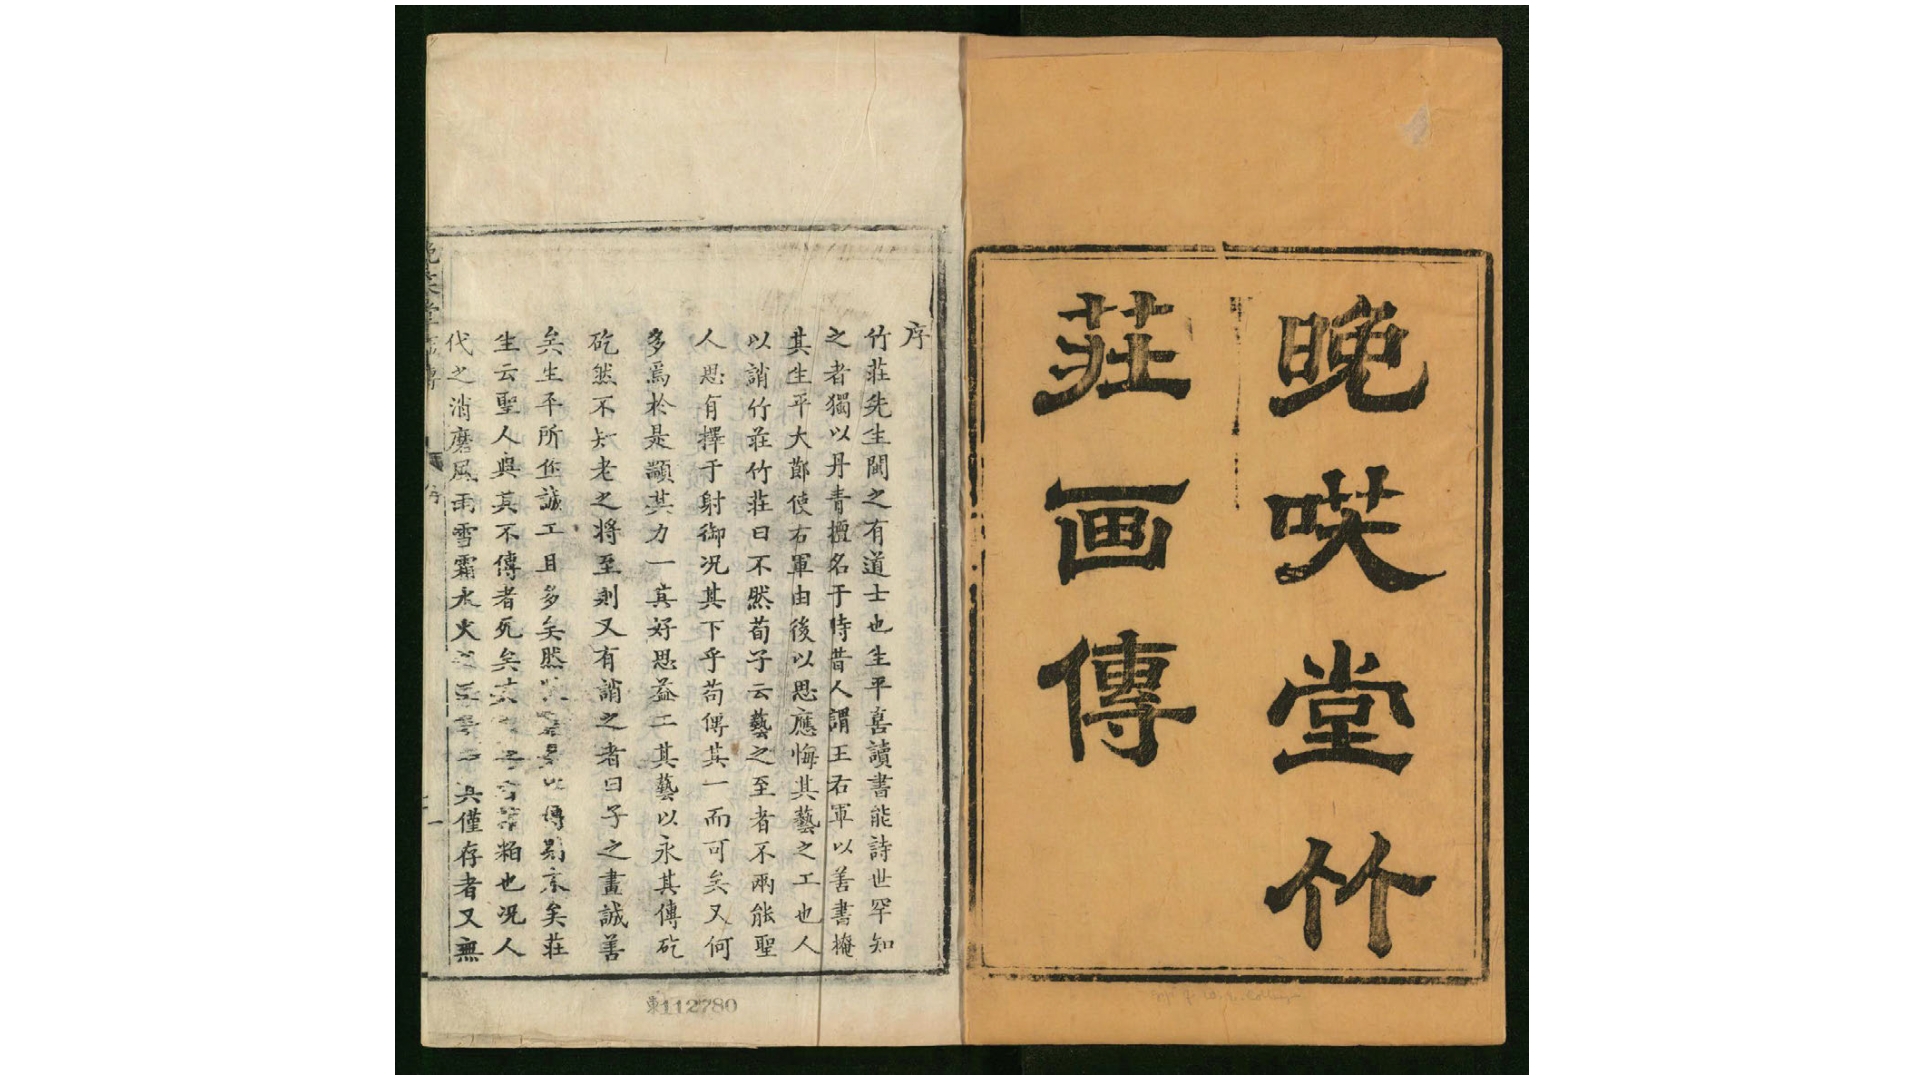 晩咲堂竹
莊画傳
序
竹莊先生閩之有道士也生平喜讀書能詩世罕知
之者獨以丹青擅名于時昔人謂王右軍以善書掩
其生平大鄣使右軍由後以思應悔其藝之工也人
以誚竹莊竹莊曰不然荀子云藝之至者不兩能聖
人思有擇于射御况其下乎苟傳其一而可矣又何
多焉於是顓其力一其好思益工其藝以永其傳矻
矻然不知老之將至則又有誚之者曰子之畫誠善
矣生平所作誠工且多矣然以傳矣莊
生云聖人與其不傳者死矣粕也况人
代之消磨風雨雪霜水火具僅存者又無
東112780